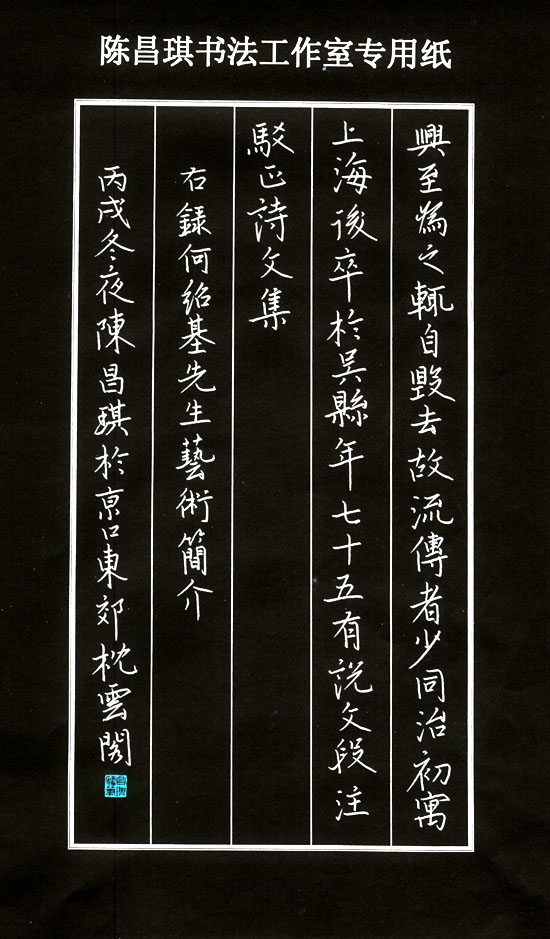 陈昌琪书法工作室专用纸
興至為之輒自毀去故流傳者少同治初寓
上海後卒於吳縣年七十五有説文段注
駁正詩文集
右録何紹基先生藝術簡介
丙戌冬夜陳昌琪於京口東郊枕雲閣